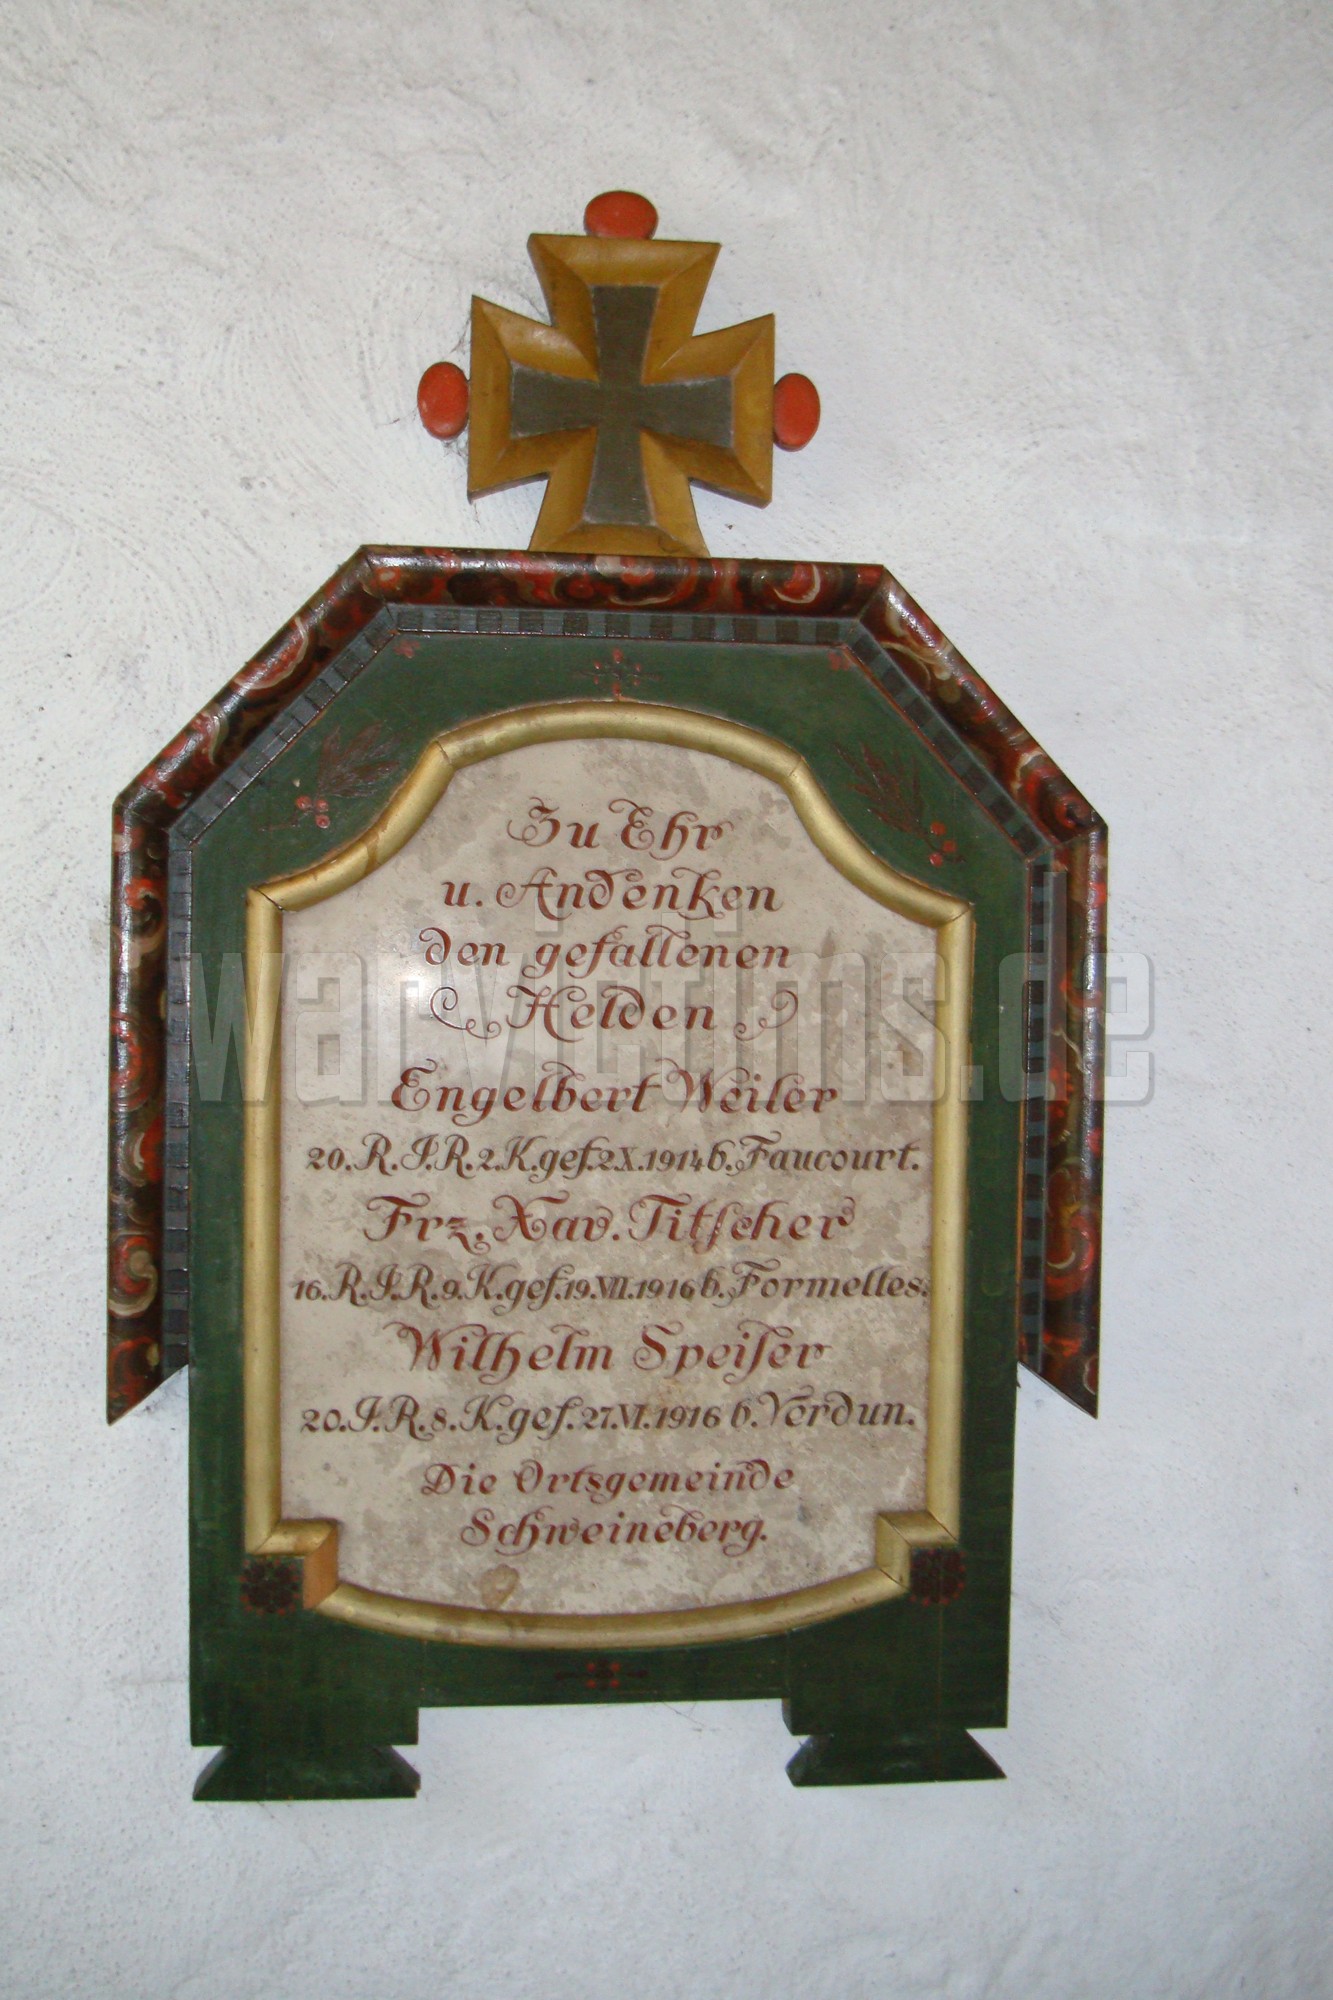 Zu Ehr
u. Andenken
den gefallenen
Helden
Engelbert Weiler
20. R. I. R. 2. K. gef. 2. X. 1914 b. Faucourt.
Frz. Xav. Titscher
16. R. I. R. 9. K. gef. 19. VII. 1916 b. Formelles.
Wilhelm Speiser
20. I. R. 8. K. gef. 27. VI. 1916 b. Verdun.
Die Ortsgemeinde
Schweineberg.
warvictims.de